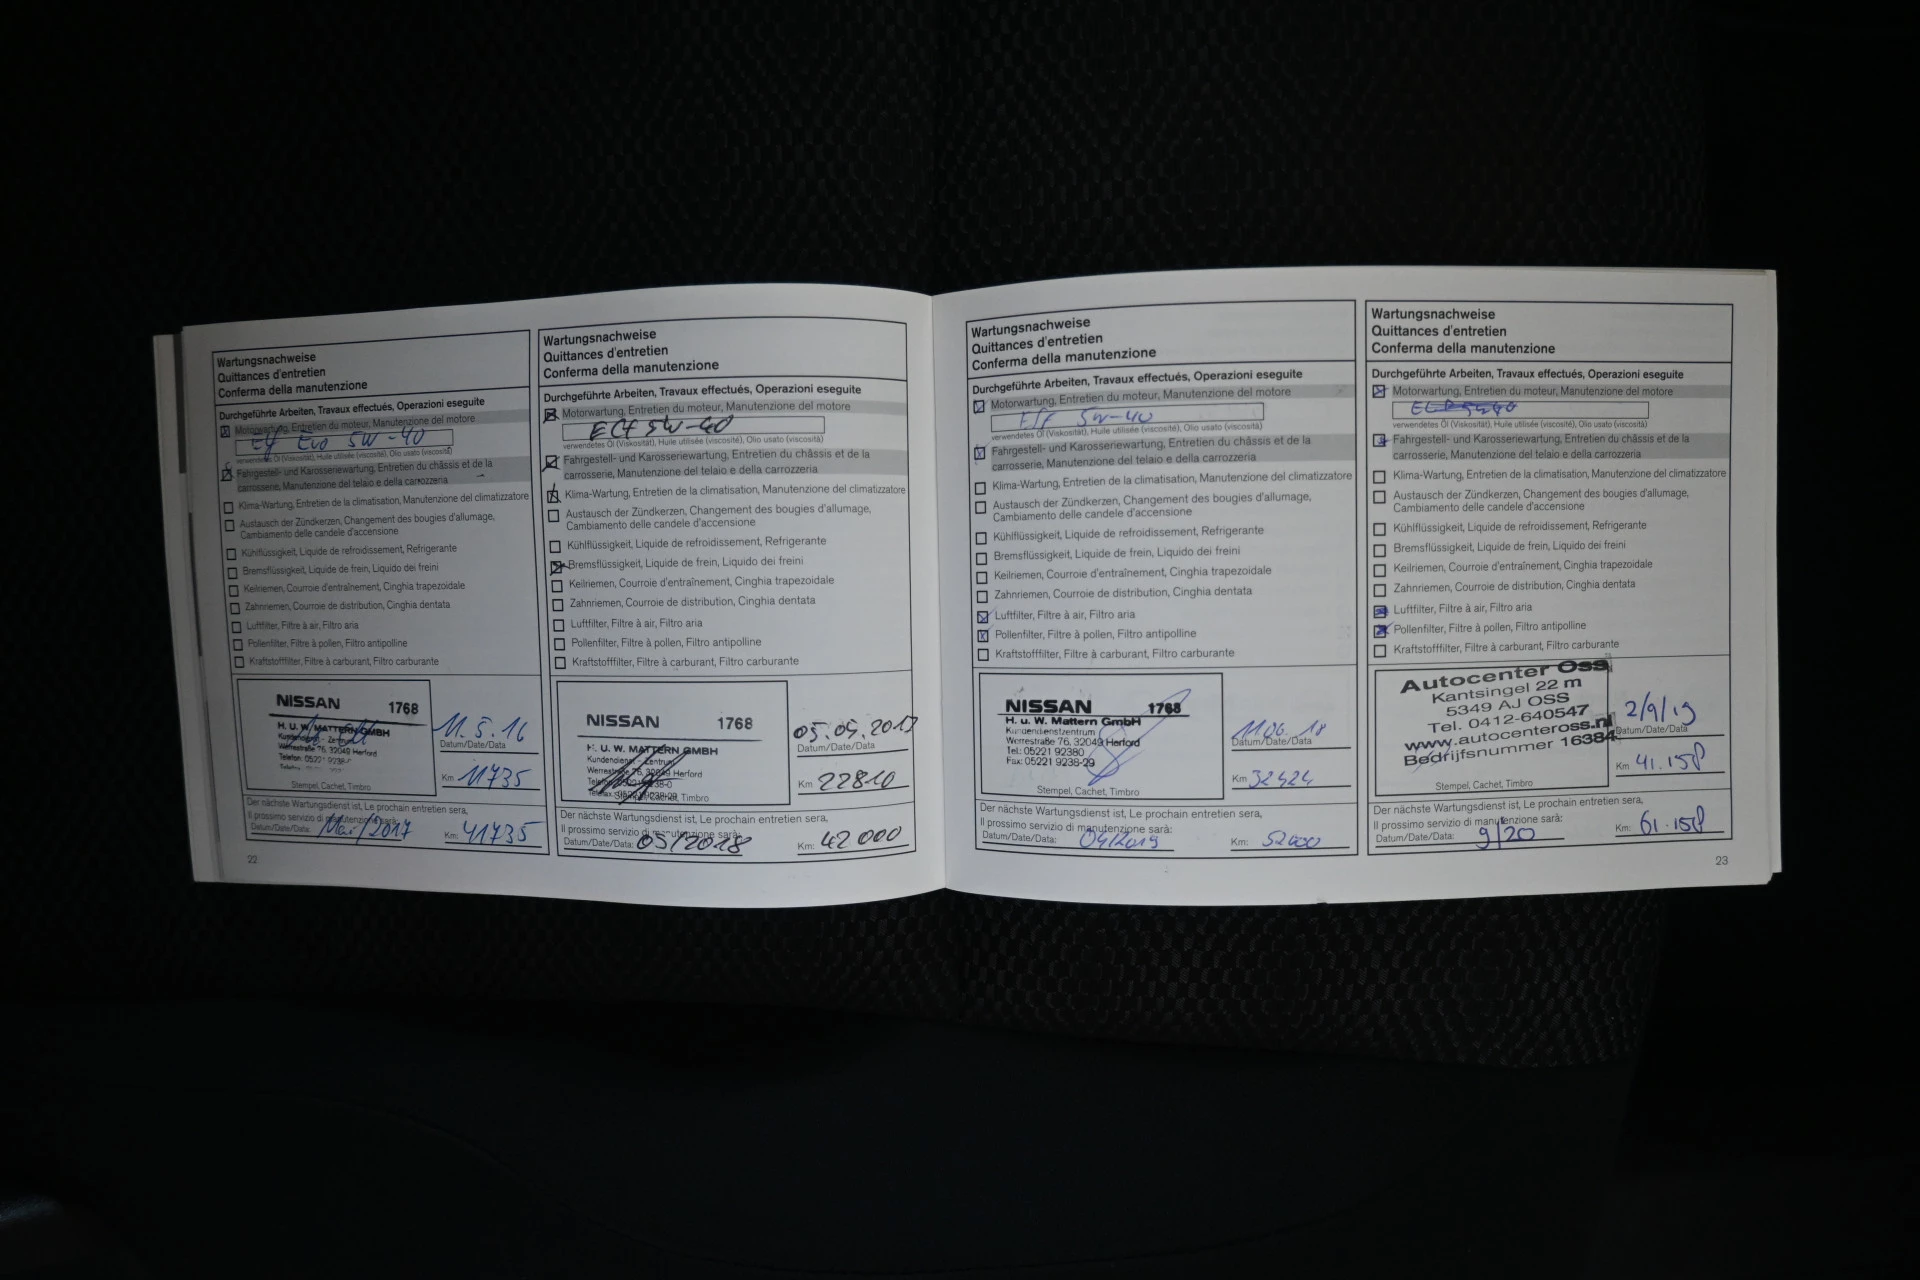 Wartungsnachweise
Quittances d'entretien
Conferma della manutenzione
Durchgeführte Arbeiten, Travaux effectués, Operazioni eseguite
Motorwartung, Entretien du moteur, Manutenzione del motore
Evo 5W-40
verwendetes Öl (Viskosität), Huile utilisée (viscosité), Olio usato (viscosità)
Fahrgestell- und Karosseriewartung, Entretien du châssis et de la
carrosserie, Manutenzione del telaio e della carrozzeria
Klima-Wartung, Entretien de la climatisation, Manutenzione del climatizzatore
Austausch der Zündkerzen, Changement des bougies d'allumage,
Cambiamento delle candele d'accensione
Kühlflüssigkeit, Liquide de refroidissement, Refrigerante
Bremsflüssigkeit, Liquide de frein, Liquido dei freini
Keilriemen, Courroie d'entraînement, Cinghia trapezoidale
Zahnriemen, Courroie de distribution, Cinghia dentata
Luftfilter, Filtre à air, Filtro aria
Pollenfilter, Filtre à pollen, Filtro antipolline
Kraftstofffilter, Filtre à carburant, Filtro carburante
NISSAN 1768
H. U. W. MATTERN GMBH
Werrestraße 76, 32049 Herford
Stempel, Cachet, Timbro
11.5.16
Datum/Date/Data
Km 11735
Der nächste Wartungsdienst ist, Le prochain entretien sera,
Il prossimo servizio di manutenzione sarà:
Datum/Date/Data: Mai/2017 Km: 41735
22
Wartungsnachweise
Quittances d'entretien
Conferma della manutenzione
Durchgeführte Arbeiten, Travaux effectués, Operazioni eseguite
Motorwartung, Entretien du moteur, Manutenzione del motore
5W-40
verwendetes Öl (Viskosität), Huile utilisée (viscosité), Olio usato (viscosità)
Fahrgestell- und Karosseriewartung, Entretien du châssis et de la
carrosserie, Manutenzione del telaio e della carrozzeria
Klima-Wartung, Entretien de la climatisation, Manutenzione del climatizzatore
Austausch der Zündkerzen, Changement des bougies d'allumage,
Cambiamento delle candele d'accensione
Kühlflüssigkeit, Liquide de refroidissement, Refrigerante
Bremsflüssigkeit, Liquide de frein, Liquido dei freini
Keilriemen, Courroie d'entraînement, Cinghia trapezoidale
Zahnriemen, Courroie de distribution, Cinghia dentata
Luftfilter, Filtre à air, Filtro aria
Pollenfilter, Filtre à pollen, Filtro antipolline
Kraftstofffilter, Filtre à carburant, Filtro carburante
NISSAN 1768
H. U. W. MATTERN GMBH
Kundendienst - Zentrum
Werrestraße 76, 32049 Herford
Stempel, Cachet, Timbro
05.05.2017
Datum/Date/Data
Km 22810
Der nächste Wartungsdienst ist, Le prochain entretien sera,
Il prossimo servizio di manutenzione sarà:
Datum/Date/Data: 05/2018 Km: 42 000
Wartungsnachweise
Quittances d'entretien
Conferma della manutenzione
Durchgeführte Arbeiten, Travaux effectués, Operazioni eseguite
Motorwartung, Entretien du moteur, Manutenzione del motore
5W-40
verwendetes Öl (Viskosität), Huile utilisée (viscosité), Olio usato (viscosità)
Fahrgestell- und Karosseriewartung, Entretien du châssis et de la
carrosserie, Manutenzione del telaio e della carrozzeria
Klima-Wartung, Entretien de la climatisation, Manutenzione del climatizzatore
Austausch der Zündkerzen, Changement des bougies d'allumage,
Cambiamento delle candele d'accensione
Kühlflüssigkeit, Liquide de refroidissement, Refrigerante
Bremsflüssigkeit, Liquide de frein, Liquido dei freini
Keilriemen, Courroie d'entraînement, Cinghia trapezoidale
Zahnriemen, Courroie de distribution, Cinghia dentata
Luftfilter, Filtre à air, Filtro aria
Pollenfilter, Filtre à pollen, Filtro antipolline
Kraftstofffilter, Filtre à carburant, Filtro carburante
NISSAN 1768
H. u. W. Mattern GmbH
Kundendienstzentrum
Werrestraße 76, 32049 Herford
Tel: 05221 92380
Fax: 05221 9238-29
Stempel, Cachet, Timbro
11.06.18
Datum/Date/Data
Km 32424
Der nächste Wartungsdienst ist, Le prochain entretien sera,
Il prossimo servizio di manutenzione sarà:
Datum/Date/Data: 04/2019 Km: 52000
Wartungsnachweise
Quittances d'entretien
Conferma della manutenzione
Durchgeführte Arbeiten, Travaux effectués, Operazioni eseguite
Motorwartung, Entretien du moteur, Manutenzione del motore
Fahrgestell- und Karosseriewartung, Entretien du châssis et de la
carrosserie, Manutenzione del telaio e della carrozzeria
Klima-Wartung, Entretien de la climatisation, Manutenzione del climatizzatore
Austausch der Zündkerzen, Changement des bougies d'allumage,
Cambiamento delle candele d'accensione
Kühlflüssigkeit, Liquide de refroidissement, Refrigerante
Bremsflüssigkeit, Liquide de frein, Liquido dei freini
Keilriemen, Courroie d'entraînement, Cinghia trapezoidale
Zahnriemen, Courroie de distribution, Cinghia dentata
Luftfilter, Filtre à air, Filtro aria
Pollenfilter, Filtre à pollen, Filtro antipolline
Kraftstofffilter, Filtre à carburant, Filtro carburante
Autocenter Oss
Kantsingel 22 m
5349 AJ OSS
Tel. 0412-640547
www.autocenteross.nl
Bedrijfsnummer 16384
Stempel, Cachet, Timbro
2/9/19
Datum/Date/Data
Km 41.158
Der nächste Wartungsdienst ist, Le prochain entretien sera,
Il prossimo servizio di manutenzione sarà:
Datum/Date/Data: 9/20 Km: 61.158
23